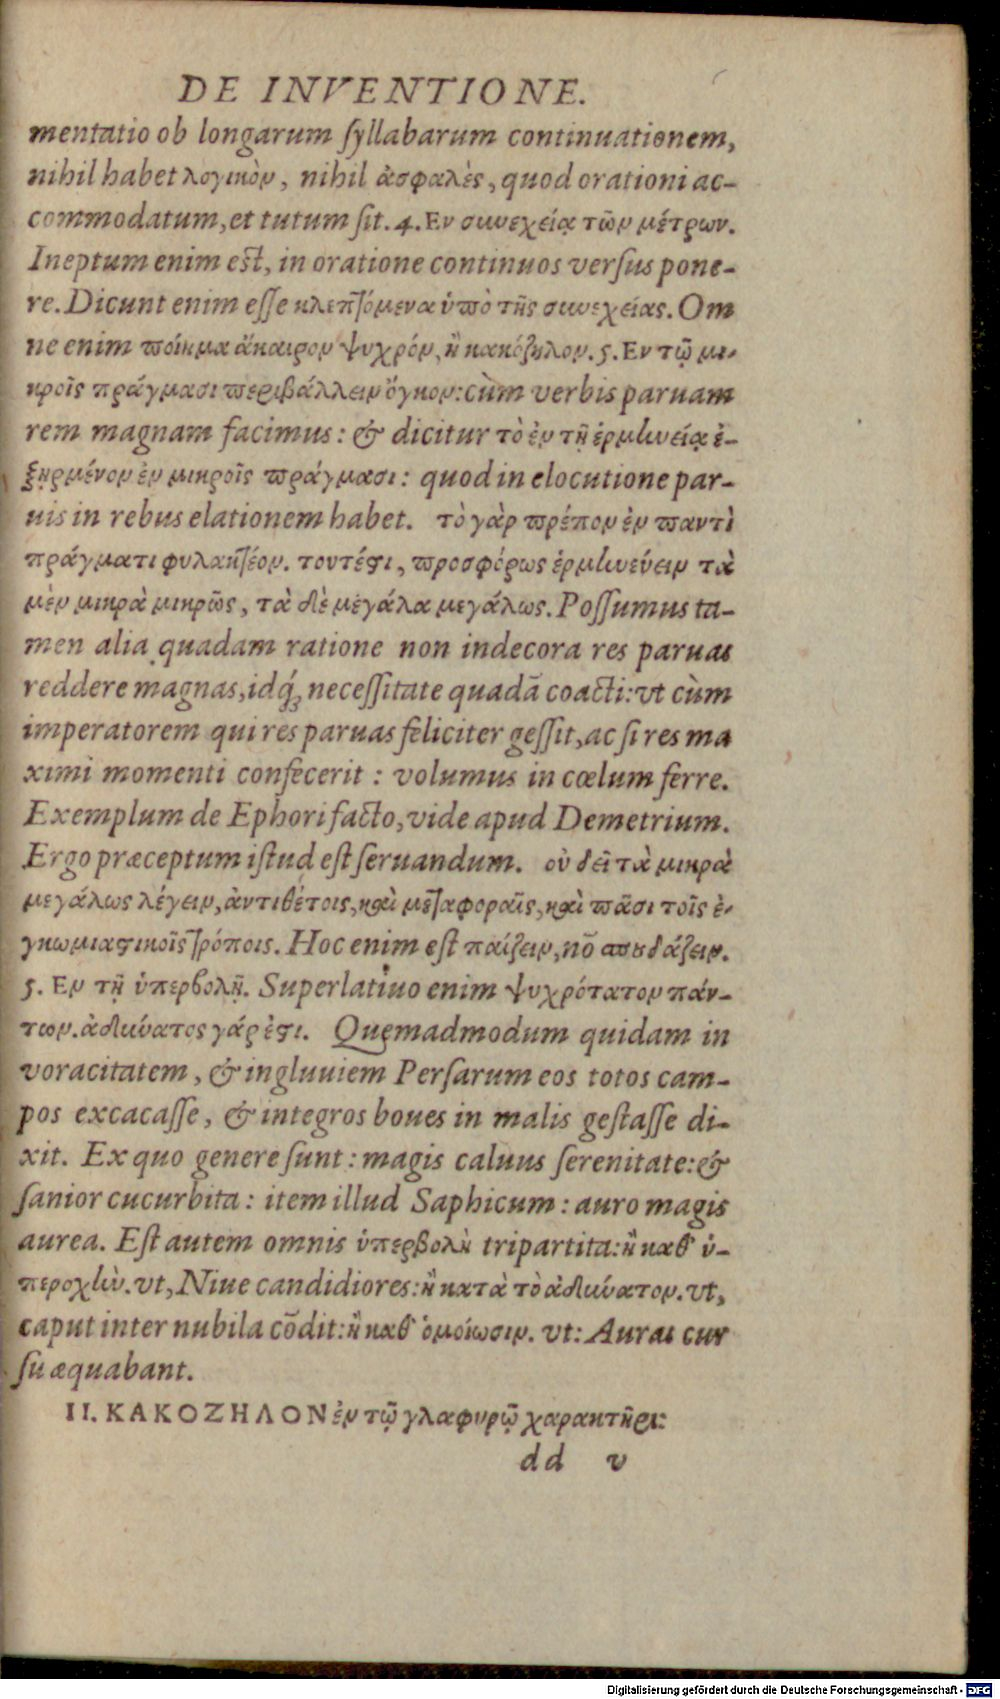 DE INVENTIONE.
mentatio ob longarum ſyllabarum continuationem,
nihil habet λογικὸν, nihil ἀσφαλὲς, quod orationi ac-
commodatum, et tutum ſit. 4. Εν συνεχείᾳ τῶν μέτρων.
Ineptum enim eſt, in oratione continuos verſus pone-
re. Dicunt enim eſſe κλεπτόμενα ὑπὸ τῆς συνεχείας. Om
ne enim ποίημα ἄκαιρον ψυχρόν, ἢ κακόζηλον. 5. Εν τῷ μι-
κροῖς πράγμασι περιβάλλειν ὄγκον: cùm verbis paruam
rem magnam facimus: & dicitur τὸ ἐν τῇ ἑρμηνείᾳ ἐ-
ξηρμένον ἐν μικροῖς πράγμασι: quod in elocutione par-
uis in rebus elationem habet. τὸ γὰρ πρέπον ἐν παντὶ
πράγματι φυλακτέον. τουτέστι, προσφόρως ἑρμηνεύειν τὰ
μὲν μικρὰ μικρῶς, τὰ δὲ μεγάλα μεγάλως. Poſſumus ta-
men alia quadam ratione non indecora res paruas
reddere magnas, idq́; neceſſitate quadā coacti: vt cùm
imperatorem qui res paruas feliciter geſſit, ac ſi res ma
ximi momenti confecerit: volumus in cœlum ferre.
Exemplum de Ephori facto, vide apud Demetrium.
Ergo præceptum iſtud eſt ſeruandum. οὐ δεῖ τὰ μικρὰ
μεγάλως λέγειν, ἀντιθέτοις, καὶ μεταφοραῖς, καὶ πᾶσι τοῖς ἐ-
γκωμιαστικοῖς τρόποις. Hoc enim eſt παίζειν, nō σπουδάζειν.
5. Εν τῇ ὑπερβολῇ. Superlatiuo enim ψυχρότατον πάν-
των. ἀδύνατος γάρ ἐστι. Quemadmodum quidam in
voracitatem, & ingluuiem Perſarum eos totos cam-
pos excacaſſe, & integros boues in malis geſtaſſe di-
xit. Ex quo genere ſunt: magis caluus ſerenitate: &
ſanior cucurbita: item illud Saphicum: auro magis
aurea. Eſt autem omnis ὑπερβολὴ tripartita: ἢ καθ᾽ ὑ-
περοχὴν. vt, Niue candidiores: ἢ κατὰ τὸ ἀδύνατον. vt,
caput inter nubila cōdit: ἢ καθ᾽ ὁμοίωσιν. vt: Aurae cur
ſu æquabant.
II. ΚΑΚΟΖΗΛΟΝ ἐν τῷ γλαφυρῷ χαρακτῆρι:
dd v
Digitalisierung gefördert durch die Deutsche Forschungsgemeinschaft - DFG